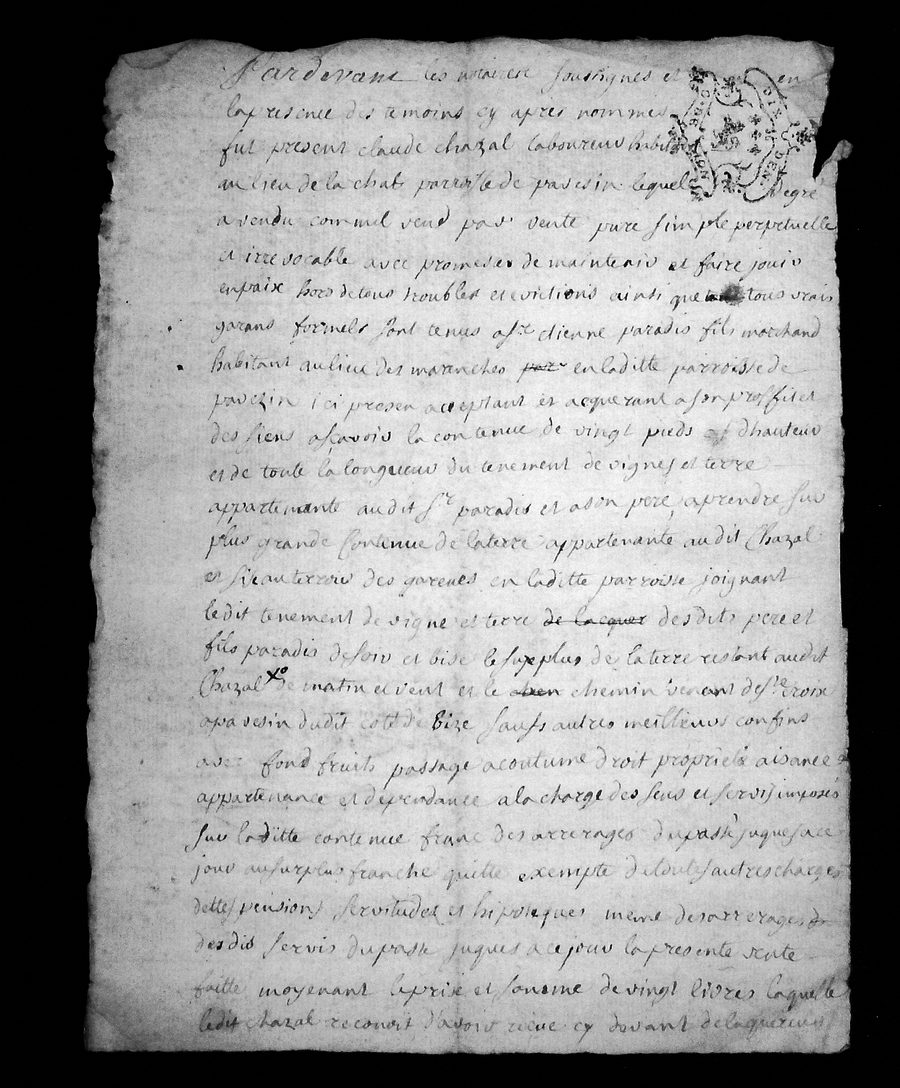 Pardevant les notaires soussignes et en
la presence des temoins cy apres nommes
fut present claude chazal laboureur habitant
au lieu de la chat parroisse de pavesin lequel de gre
a vendu comme il vend par vente pure simple perpetuelle
et irrevocable avec promesse de maintenir et faire jouir
en paix hors de tous troubles et evictions ainsi que tous vrais
garans formels sont tenus a sr etienne paradis fils marchand
habitant au lieu des maranches en laditte parroisse de
pavezin ici presen aceptant et acquerant a son proffit et
des siens asçavoir la contenue de vingt pieds d'hauteur
et de toute la longueur du tenement de vignes et terre
appartenante audit sr paradis et a son pere aprendre sur
plus grande contenue de la terre appartenante audit Chazal
et size au terroir des garenes en laditte parroisse joignant
ledit tenement de vigne et terre de lacquer desdits pere et
fils paradis de soir et bise le surplus de la terre restant audit
Chazal de matin et vent et le chemin venant de ste croix
a pavesin dudit coté de bize saufs autres meillieurs confins
avec fond fruits passage acoutumé droit proprieté aisance
appartenance et dependance a la charge des sens et servis imposés
sur laditte contenue franc des arrerages du passé juques a ce
jour au surplus franche quitte exempte de toutes autres charges
dettes pensions servitudes et hipoteques meme des arrerages
desdis servis du passé juques a ce jour la presente vente
faitte moyenant le prix et somme de vingt livres laquelle
ledit chazal reconoit d'avoir reçue cy devant de laquereur